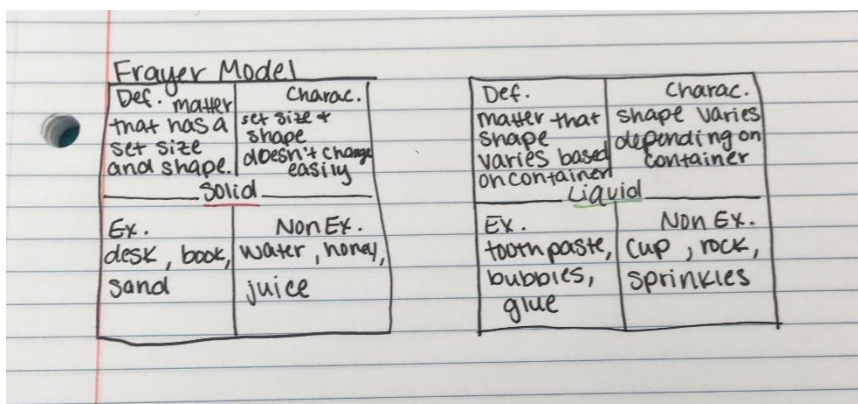 Frayer Model
Def. matter
that has a
set size
and shape.
Charac.
set size +
shape
doesn't change
easily
Solid
Ex.
desk, book,
sand
Non Ex.
water, honey,
juice
Def.
matter that
shape
varies based
on container
Charac.
shape varies
depending on
container
Liquid
Ex.
toothpaste,
bubbles,
glue
Non Ex.
cup, rock,
sprinkles